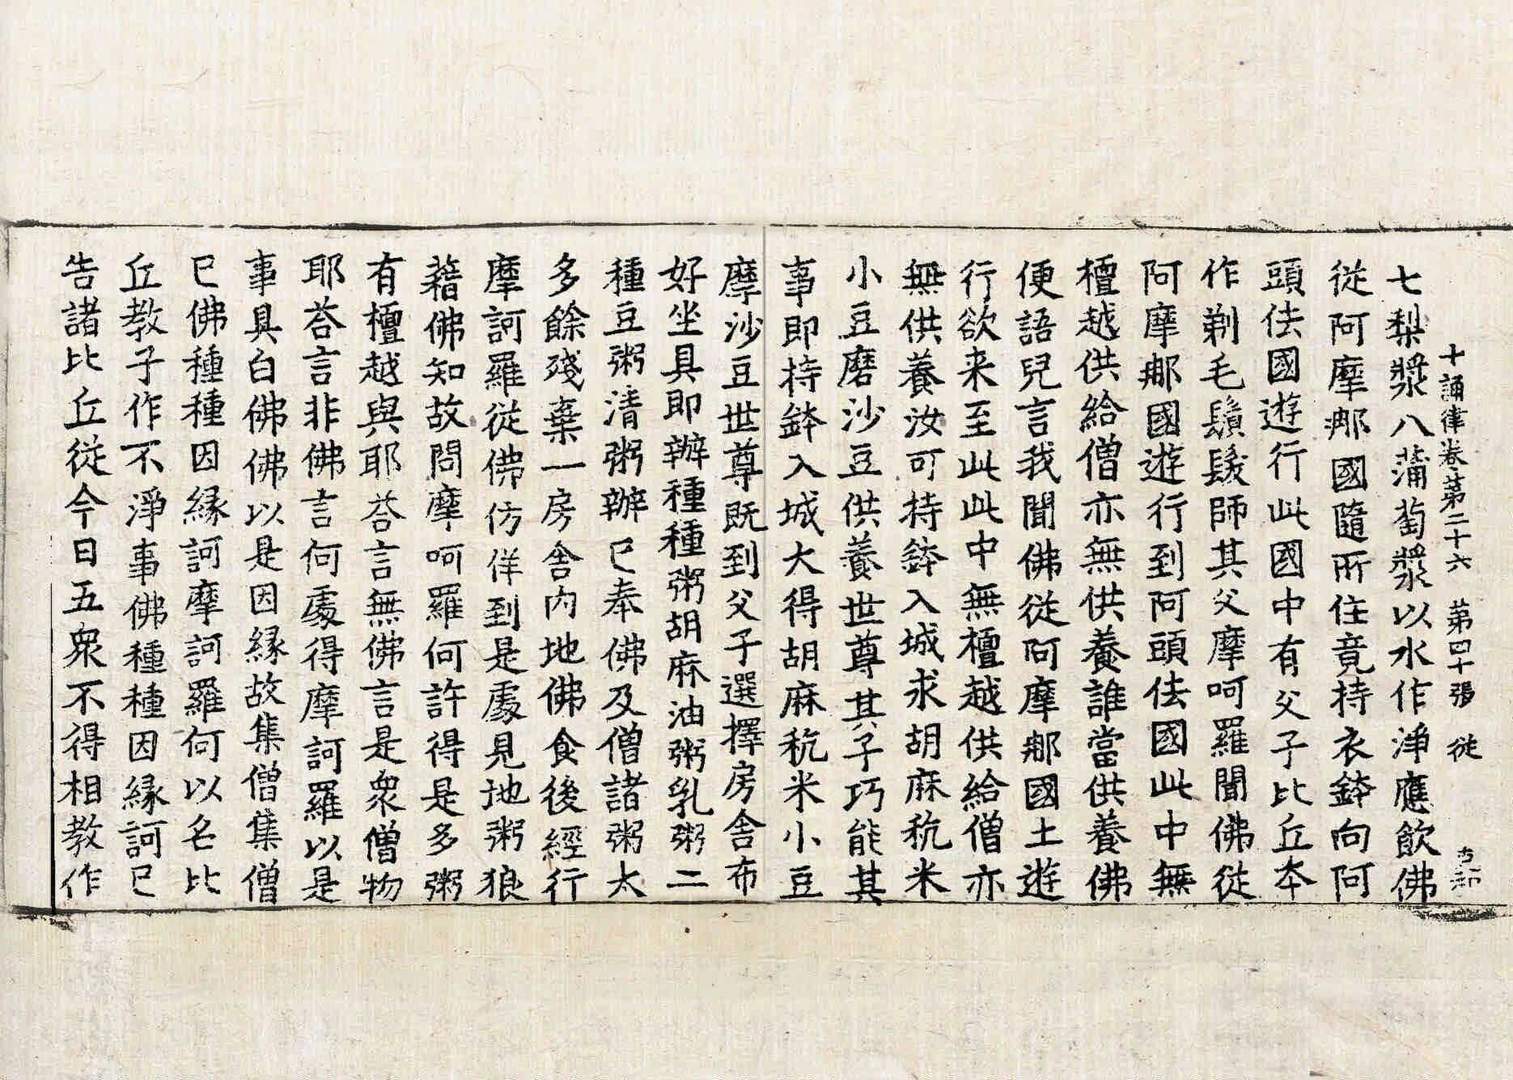 十誦律卷第二十六 第四十張 從
七梨漿八蒲萄漿以水作淨應飲佛
從阿摩那國隨所住竟持衣鉢向阿
頭佉國遊行此國中有父子比丘本
作剃毛鬚髮師其父摩呵羅聞佛從
阿摩那國遊行到阿頭佉國此中無
檀越供給僧亦無供養誰當供養佛
便語兒言我聞佛從阿摩那國土遊
行欲来至此此中無檀越供給僧亦
無供養汝可持鉢入城求胡麻秔米
小豆磨沙豆供養世尊其子巧能其
事即持鉢入城大得胡麻秔米小豆
摩沙豆世尊既到父子選擇房舍布
好坐具即辦種種粥胡麻油粥乳粥二
種豆粥清粥辦已奉佛及僧諸粥太
多餘殘棄一房舍内地佛食後經行
摩訶羅從佛仿佯到是處見地粥狼
藉佛知故問摩呵羅何許得是多粥
有檀越與耶荅言無佛言是衆僧物
耶荅言非佛言何處得摩訶羅以是
事具白佛佛以是因縁故集僧集僧
已佛種種因縁訶摩訶羅何以名比
丘教子作不淨事佛種種因縁訶已
告諸比丘從今日五衆不得相教作